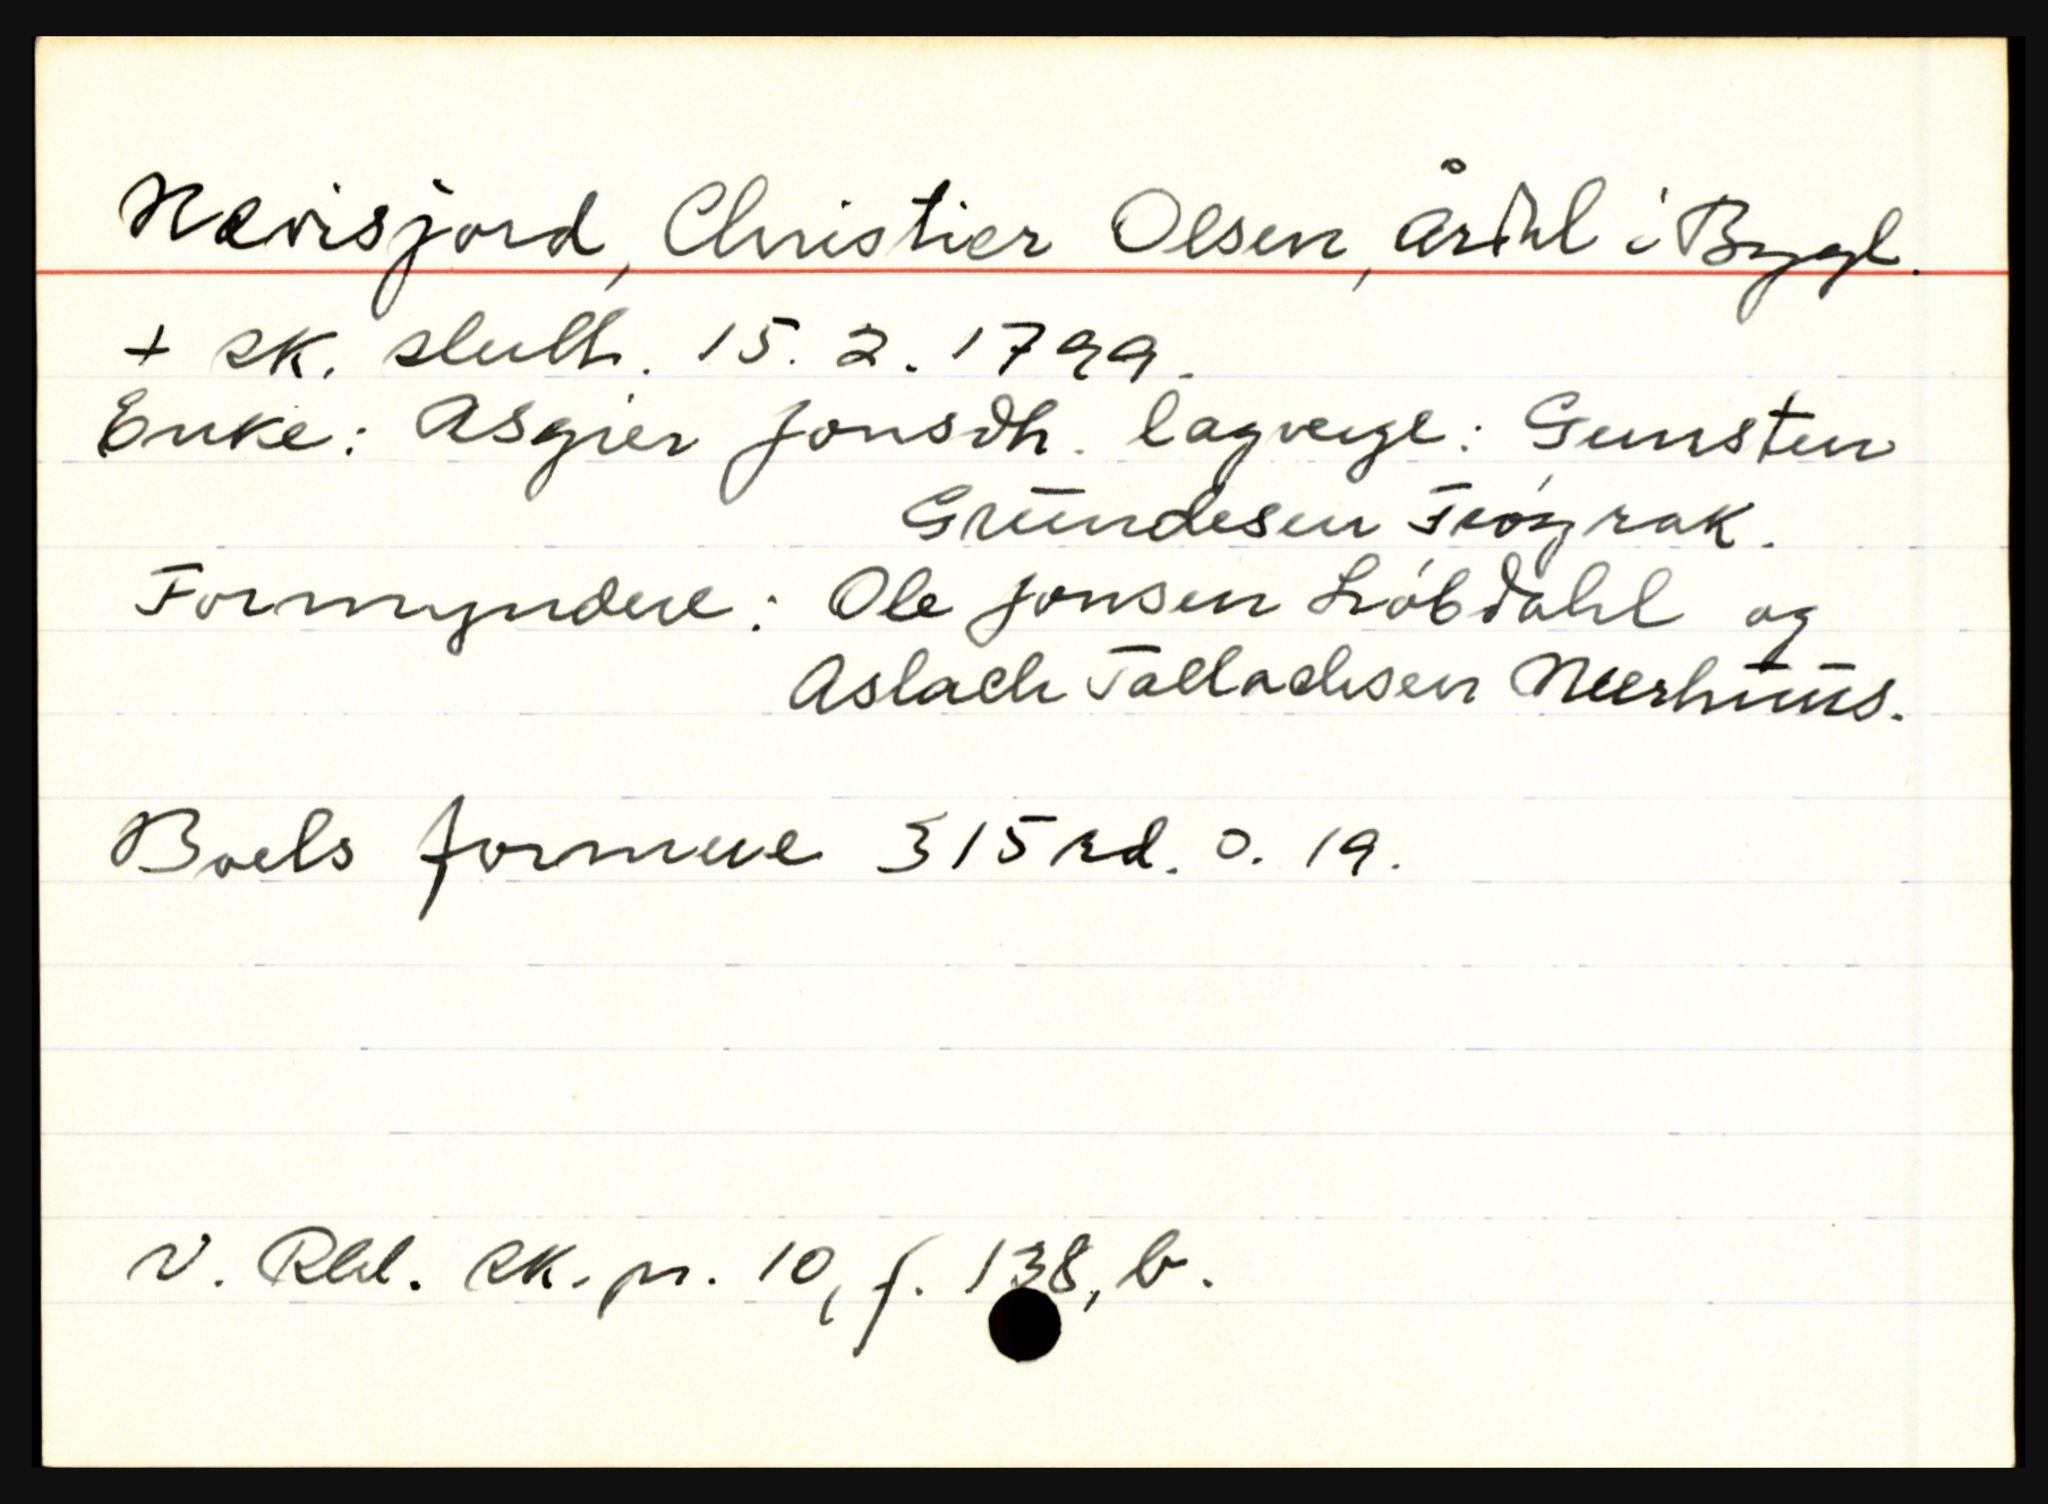 Nævisjord, Christier Olsen, Årdal i Bygl.
+ sk. slutth. 15. 2. 1799.
Enke: Asgier Jonsdh. lagverge: Gunsten
Grundesen Frøyrak.
Formyndere: Ole Jonsen Liøbdahl og
Aslach Tallachsen Neerhuus.
Boets formue 315 rd. 0. 19.
V. Rbl. sk. pr. 10, f. 138, b.